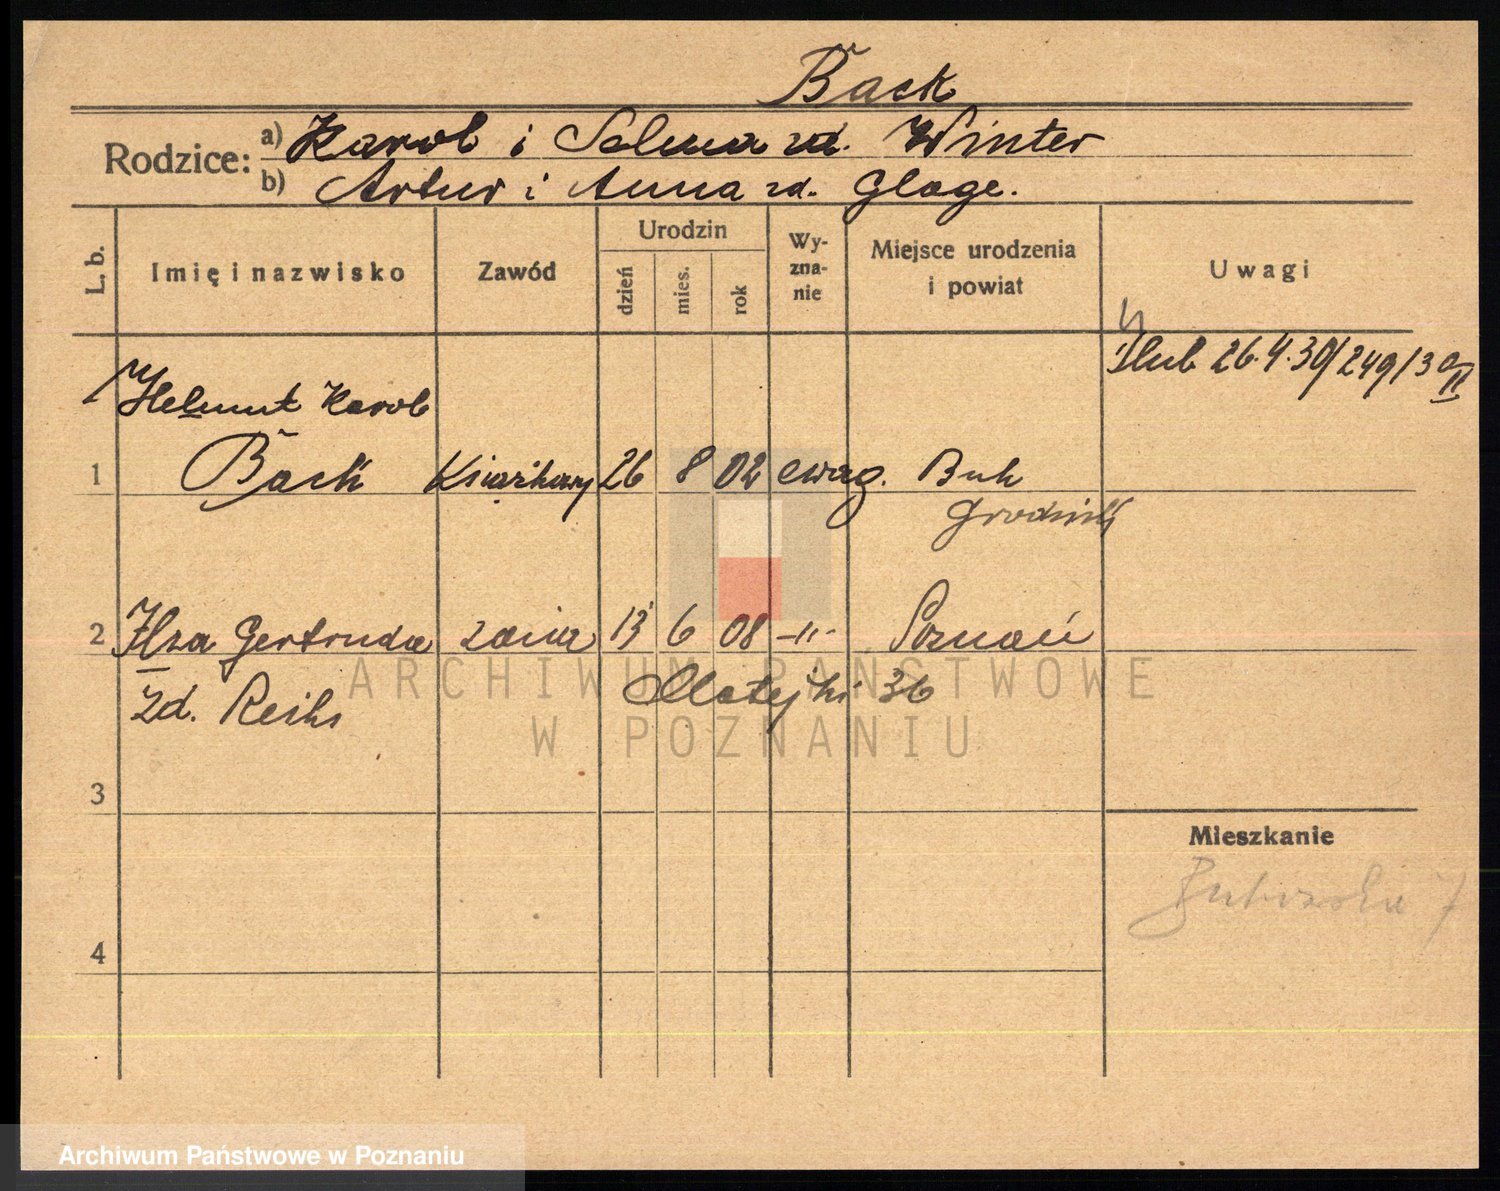 Bask
Rodzice: a) Karol i Selma zd. Winter
b) Artur i Anna zd. Glage.
L. b.
Imię i nazwisko
Zawód
Urodzin
dzień
mies.
rok
Wy-
zna-
nie
Miejsce urodzenia
i powiat
Uwagi
ślub 26.4.30/249/30 II
Helmut Karol
1 Bask Książkowy 26 8 02 ewag. Buk
Grodzisk
2 Ilza Gertruda żona 13 6 08 -"- Poznań
zd. Reihs Matejki 36
ARCHIWUM PAŃSTWOWE
W POZNANIU
3
Mieszkanie
7
4
Archiwum Państwowe w Poznaniu